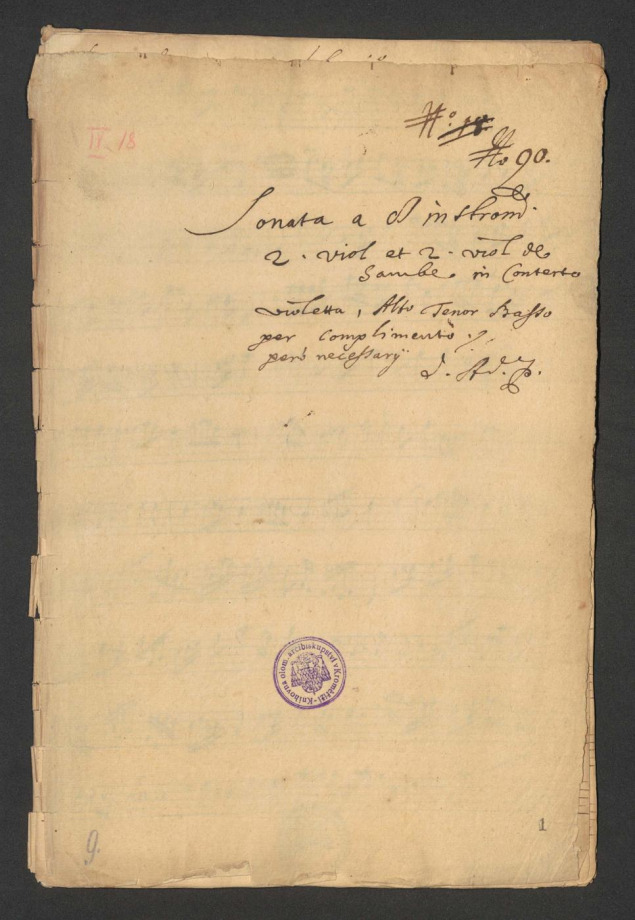 IV. 18
No. 18
No 90.
Sonata a 8 instrom.
2. viol et 2. viol de
Gambe in Conterto
violetta, Alto Tenor Basso
per complimento
però necessarij
d. Ad. P.
Knihovna olom. arcibiskupství v Kroměříži
9.
1